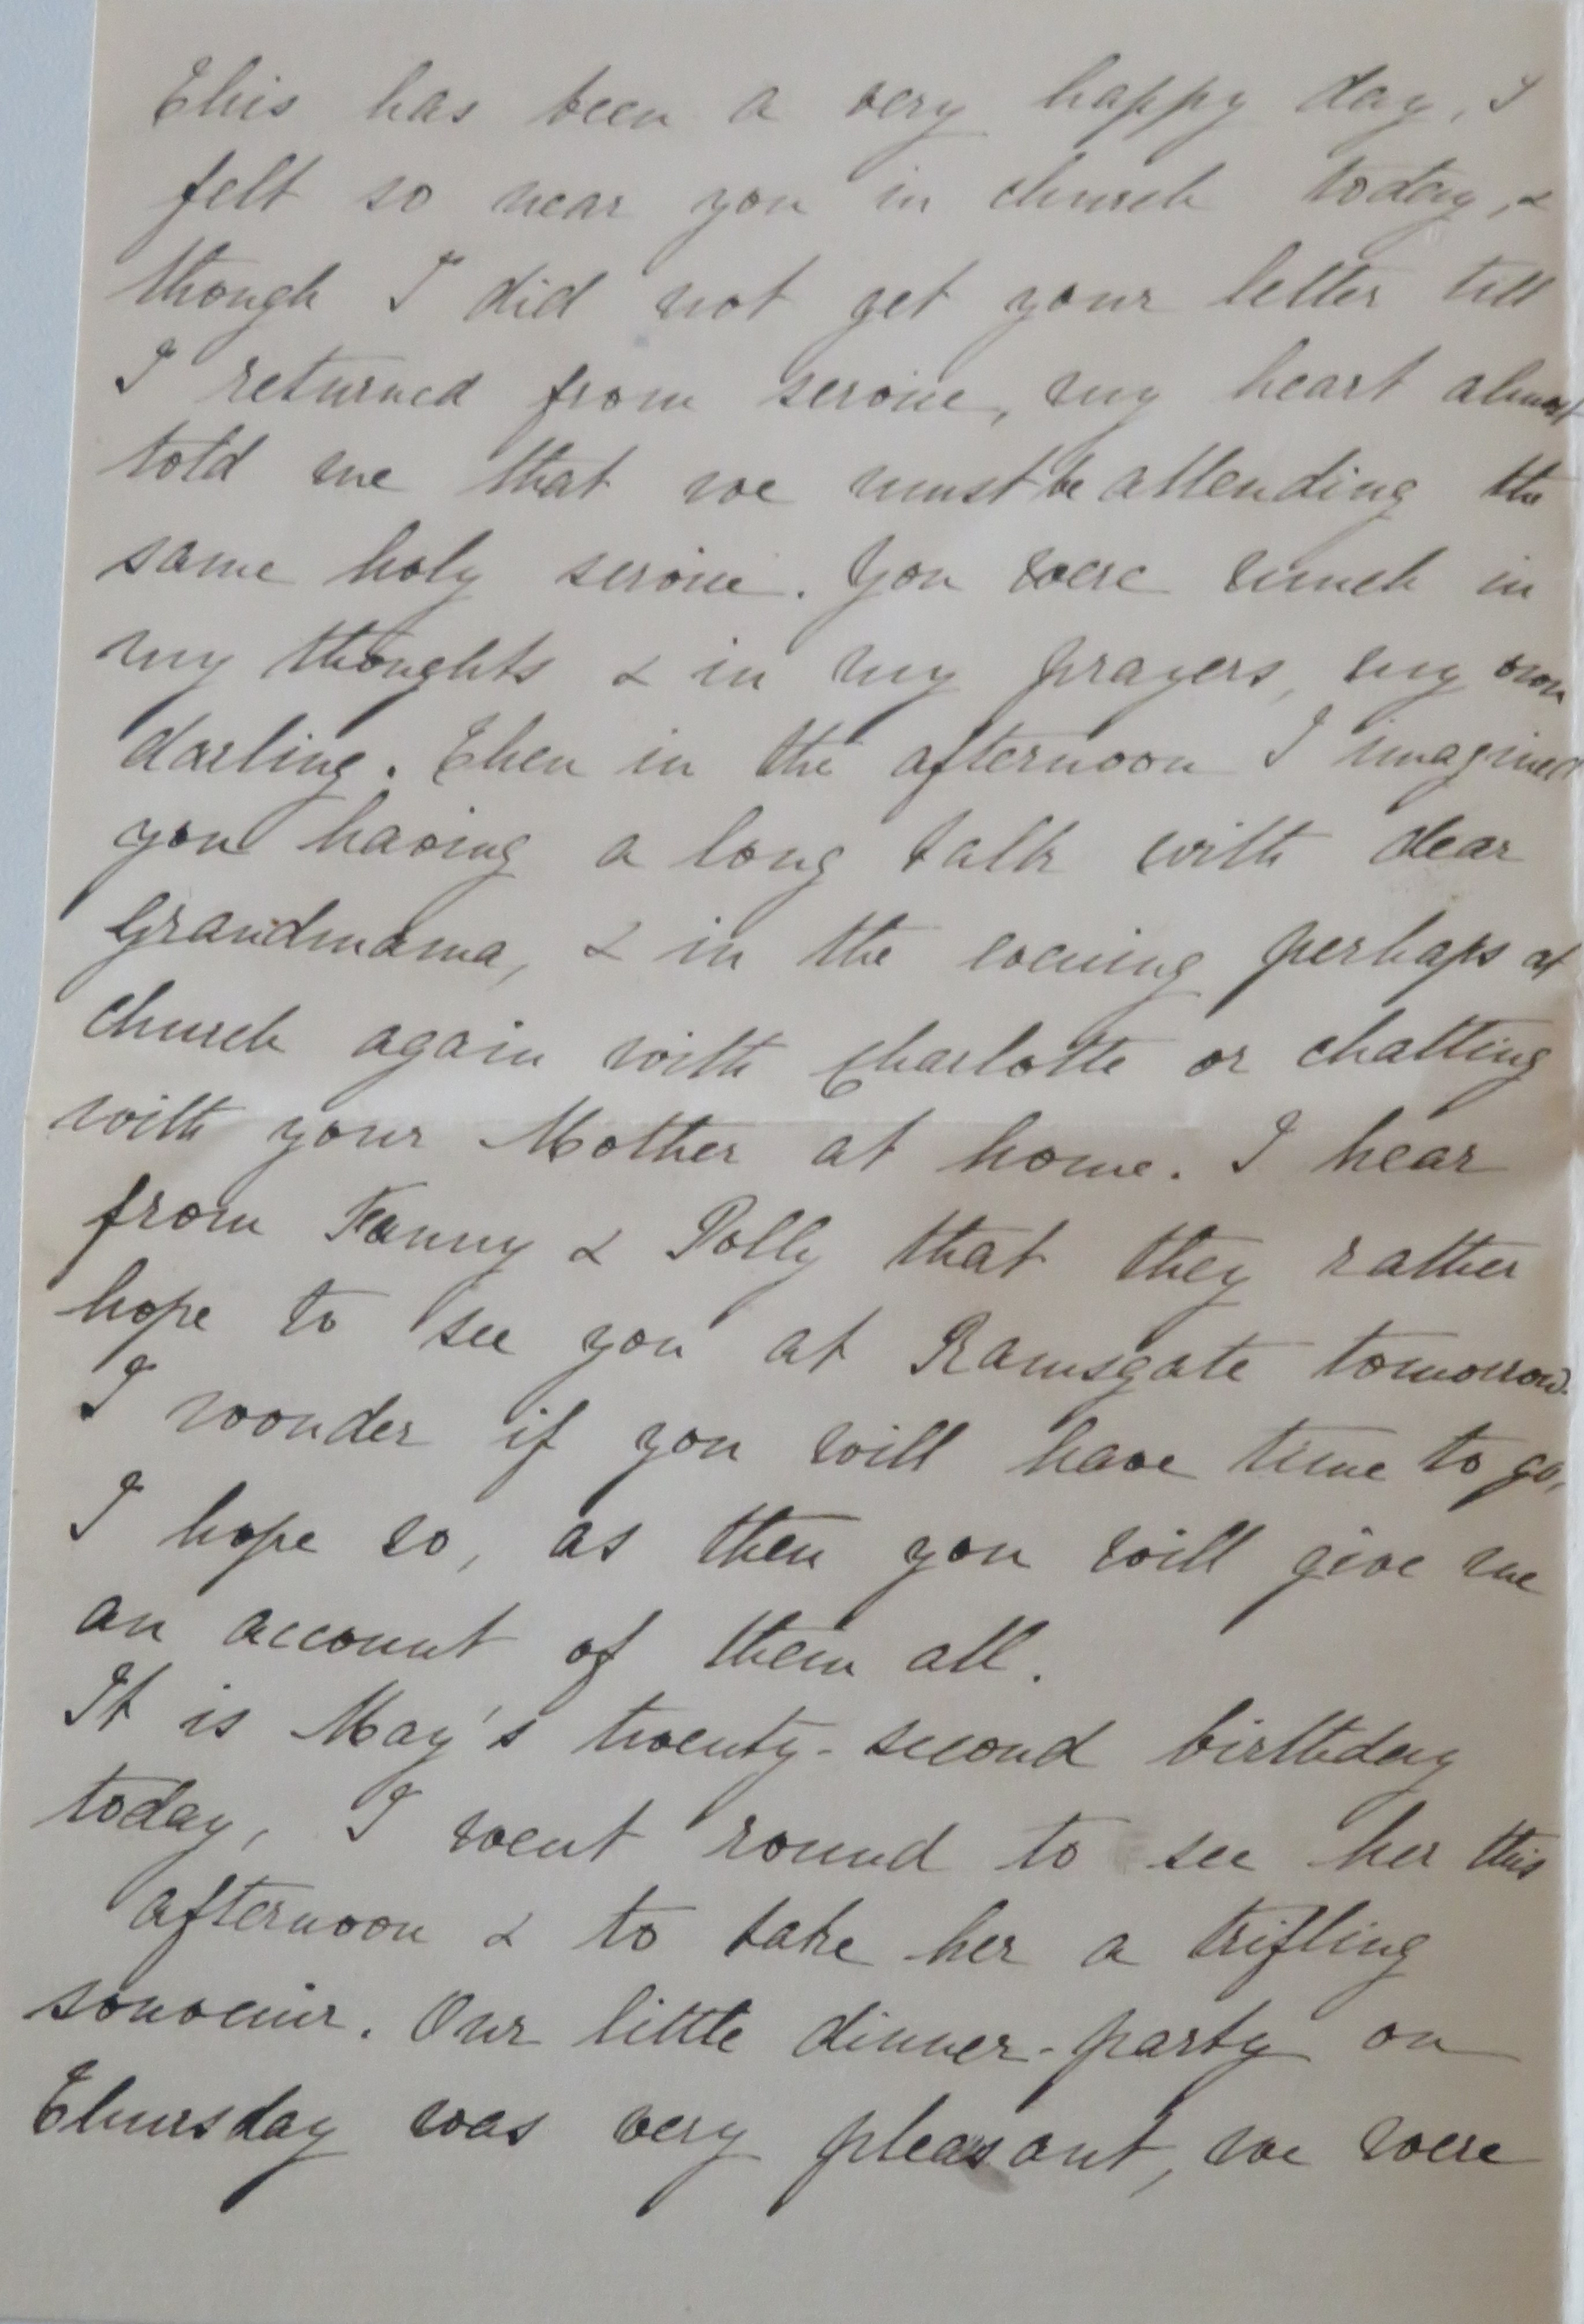 This has been a very happy day, I
felt so near you in church today, &
though I did not get your letter till
I returned from service, my heart almost
told me that we must be attending the
same holy service. You were much in
my thoughts & in my prayers, my own
darling. Then in the afternoon I imagined
you having a long talk with dear
Grandmama, & in the evening perhaps at
church again with Charlotte or chatting
with your Mother at home. I hear
from Fanny & Polly that they rather
hope to see you at Ramsgate tomorrow.
I wonder if you will have time to go,
I hope so, as then you will give me
an account of them all.
It is May's twenty-second birthday
today, I went round to see her this
afternoon & to take her a trifling
souvenir. Our little dinner-party on
Thursday was very pleasant, we were